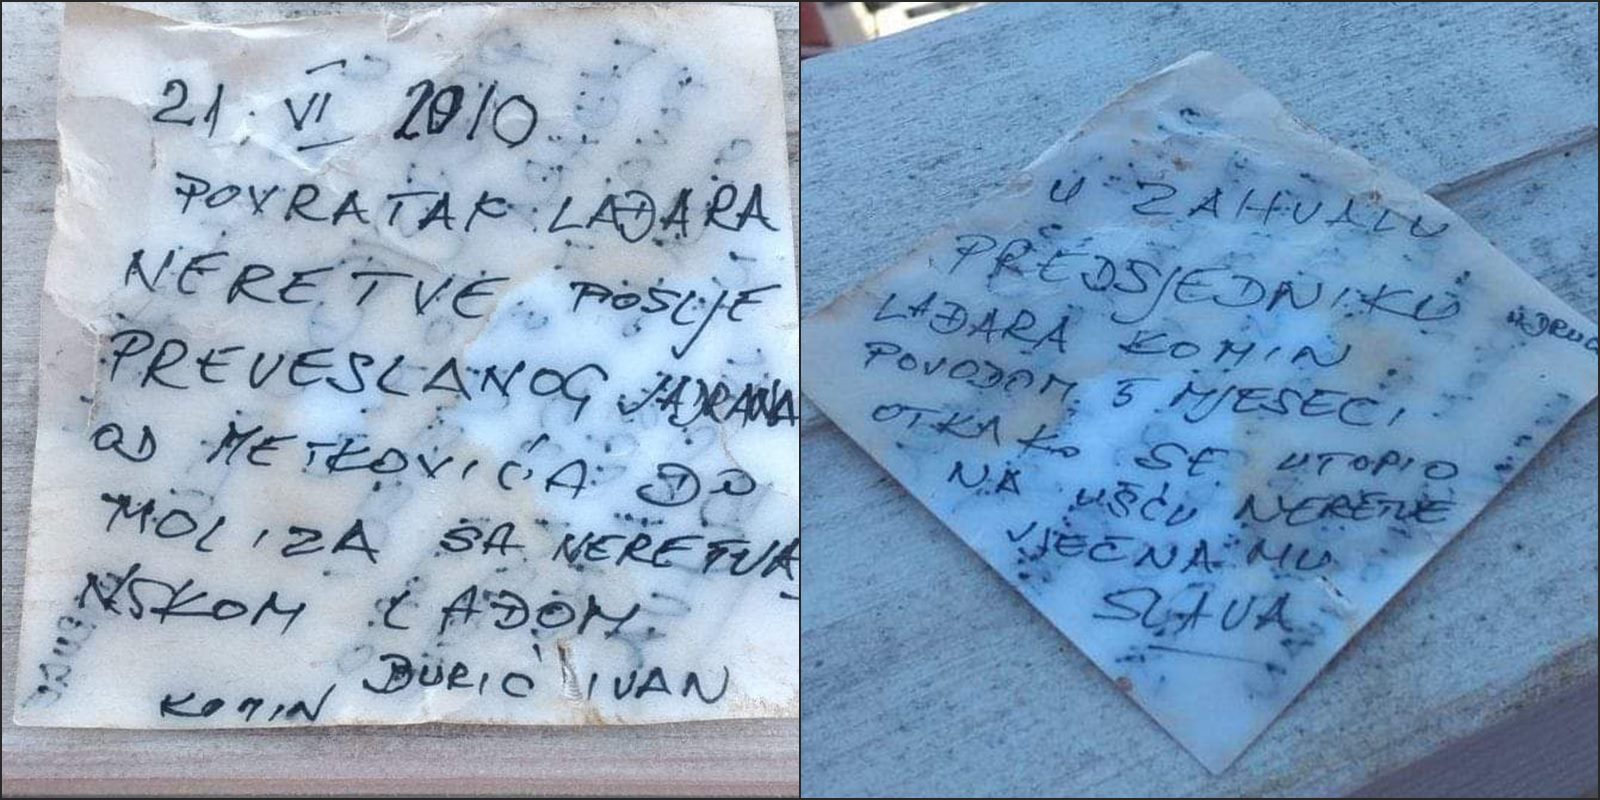 21. VI 2010
POVRATAK LAĐARA
NERETVE POSLJE
PREVESLANOG JADRANA
OD METKOVIĆA DO
MOLIZA SA NERETVA
NSKOM LAĐOM
ĐURIĆ IVAN
KOMIN
U ZAHVALU
PREDSJEDNIKU
LAĐARA KOMIN
POVODOM 5 MJESECI
OTKAKO SE UTOPIO
NA UŠĆU NERETVE
VJEČNA MU
SLAVA